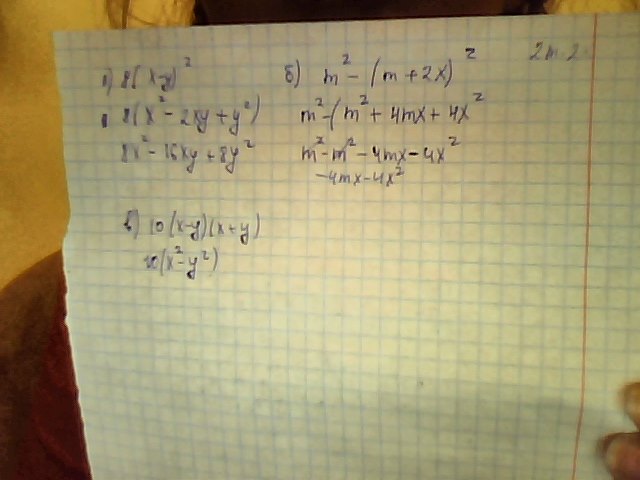 а) 8(x-y)²
8(x² - 2xy + y²)
8x² - 16xy + 8y²
б) m² - (m + 2x)²
m² - (m² + 4mx + 4x²
m² - m² - 4mx - 4x²
-4mx - 4x²
2m · 2
в) 10(x-y)(x+y)
10(x² - y²)